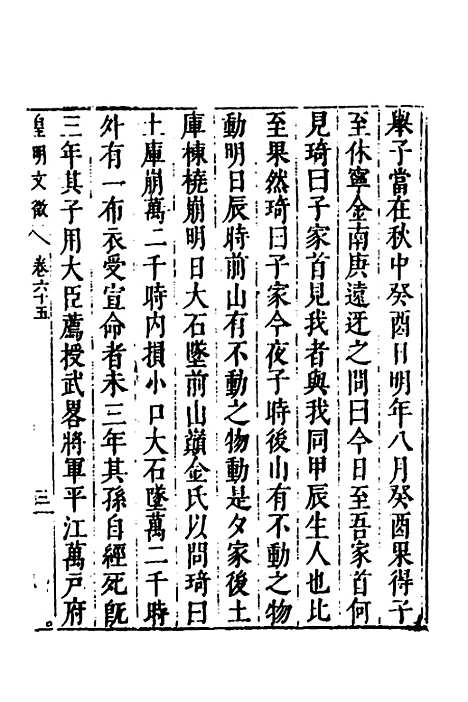 舉子當在秋中癸酉日明年八月癸酉果得子
至休寧金南庚遠迓之問曰今日至吾家首何
見琦曰子家首見我者與我同甲辰生人也比
至果然琦曰子家今夜子時後山有不動之物
動明日辰時前山有不動之物動是夕家後土
庫棟橈崩明日大石墜前山嶺金氏以問琦曰
土庫崩萬二千時內損小口大石墜萬二千時
外有一布衣受宣命者未三年其孫自經死旣
三年其子用大臣薦授武畧將軍平江萬戸府
皇明文徵 卷六十五 三